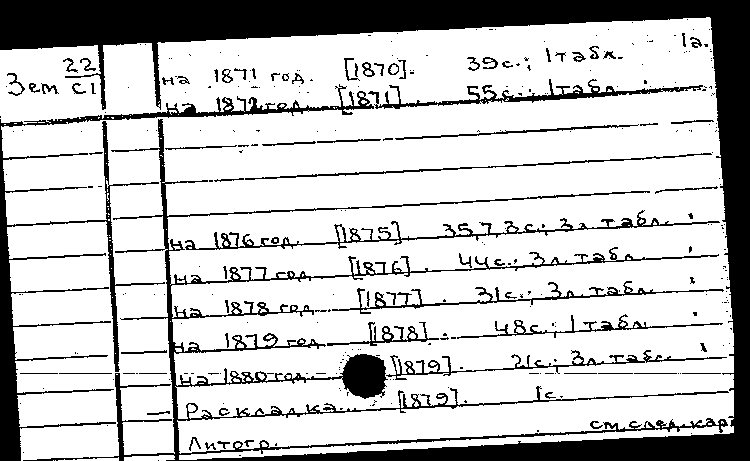 1а.
Зем 22/С1
на 1871 год. [1870]. 39с.; 1табл.
на 1872 год [1871]. 55с.; 1табл.
на 1876 год. [1875]. 35,7,3с.; 3л. табл.
на 1877 год [1876]. 44с.; 3л. табл.
на 1878 год [1877]. 31с.; 3л. табл.
на 1879 год [1878]. 48с.; 1 табл.
на 1880 год. [1879]. 21с.; 3л. табл.
— Раскладка... [1879]. 1с.
Литогр. см. след. карт